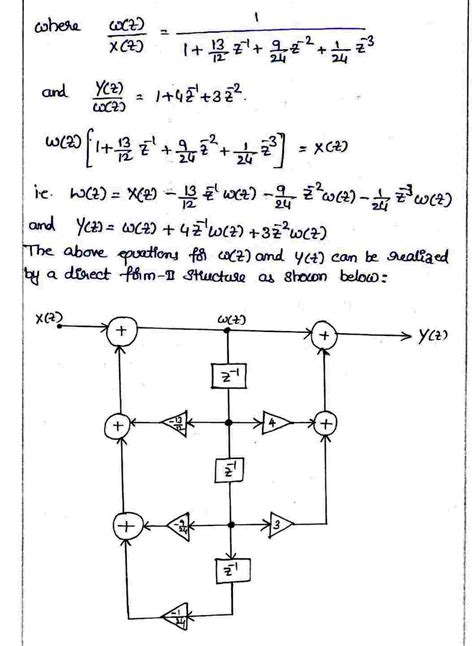 where W(z)/X(z) = 1 / (1 + 13/12 z⁻¹ + 9/24 z⁻² + 1/24 z⁻³)
and Y(z)/W(z) = 1+4z⁻¹+3z⁻².
W(z)[1+ 13/12 z⁻¹ + 9/24 z⁻² + 1/24 z⁻³] = X(z)
i.e. W(z) = X(z) - 13/12 z⁻¹ W(z) - 9/24 z⁻² W(z) - 1/24 z⁻³ W(z)
and Y(z) = W(z) + 4z⁻¹W(z) + 3z⁻²W(z)
The above equations for W(z) and Y(z) can be realized
by a direct form-II structure as shown below:
X(z) + W(z) + Y(z)
z⁻¹
+ -13/12 4 +
z⁻¹
+ -9/24 3
z⁻¹
-1/24